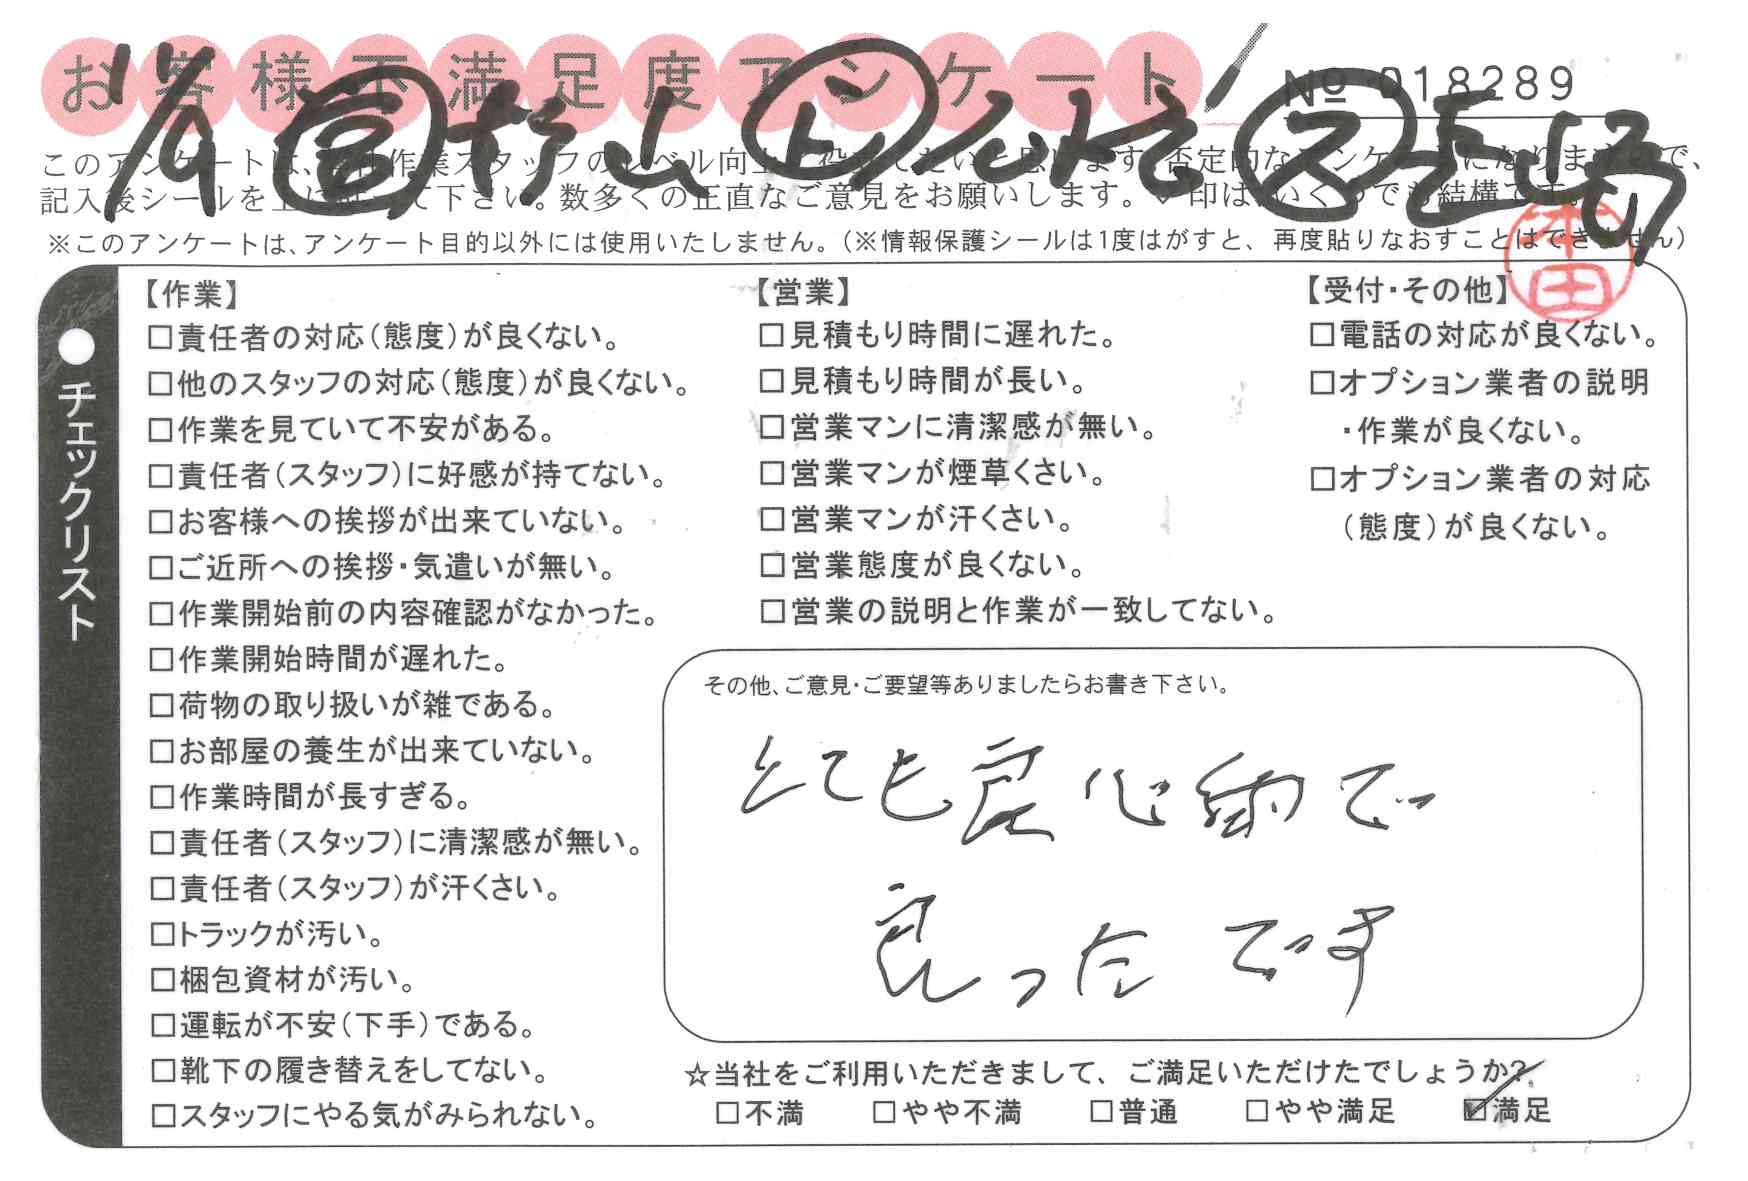 お客様不満足度アンケート
№ 018289
営 杉山 ト ス
このアンケートは、作業スタッフのレベル向上
記入後シールを上に て下さい。数多くの正直なご意見をお願いします。 印は、いくつでも結構です。
※このアンケートは、アンケート目的以外には使用いたしません。（※情報保護シールは1度はがすと、再度貼りなおすことはできません）
本田
チェックリスト
【作業】
□責任者の対応（態度）が良くない。
□他のスタッフの対応（態度）が良くない。
□作業を見ていて不安がある。
□責任者（スタッフ）に好感が持てない。
□お客様への挨拶が出来ていない。
□ご近所への挨拶・気遣いが無い。
□作業開始前の内容確認がなかった。
□作業開始時間が遅れた。
□荷物の取り扱いが雑である。
□お部屋の養生が出来ていない。
□作業時間が長すぎる。
□責任者（スタッフ）に清潔感が無い。
□責任者（スタッフ）が汗くさい。
□トラックが汚い。
□梱包資材が汚い。
□運転が不安（下手）である。
□靴下の履き替えをしてない。
□スタッフにやる気がみられない。
【営業】
□見積もり時間に遅れた。
□見積もり時間が長い。
□営業マンに清潔感が無い。
□営業マンが煙草くさい。
□営業マンが汗くさい。
□営業態度が良くない。
□営業の説明と作業が一致してない。
【受付・その他】
□電話の対応が良くない。
□オプション業者の説明
・作業が良くない。
□オプション業者の対応
（態度）が良くない。
その他、ご意見・ご要望等ありましたらお書き下さい。
とても良心的で
良ったです
☆当社をご利用いただきまして、ご満足いただけたでしょうか?
□不満 □やや不満 □普通 □やや満足 ☑満足